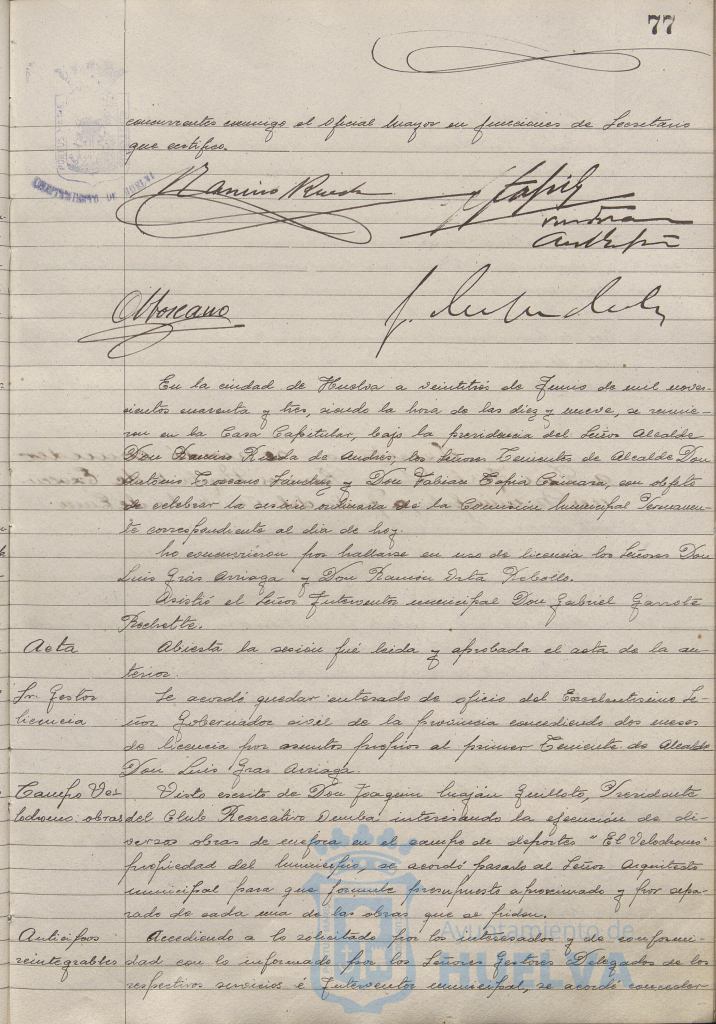 77
concurrentes conmigo el Oficial Mayor en funciones de Secretario
que certifico.
Ramiro Rueda
Tapia
A Toscano
En la ciudad de Huelva a veintitrés de Junio de mil nove-
cientos cuarenta y tres, siendo la hora de las diez y nueve, se reunie-
ron en la Casa Capitular, bajo la presidencia del Señor Alcalde
Don Ramiro Rueda de Andrés, los Señores Tenientes de Alcalde Don
Antonio Toscano Sánchez y Don Fabian Tapia Cámara, con objeto
de celebrar la sesión ordinaria de la Comisión Municipal Permanen-
te correspondiente al dia de hoy.
No concurrieron por hallarse en uso de licencia los Señores Don
Luis Gras Arriaga y Don Ramón Rebollo.
Asistió el Señor Interventor municipal Don Gabriel Garrote
Acta
Abierta la sesión fué leida y aprobada el acta de la an-
terior.
Sr. Gestor
licencia
Se acordó quedar enterado de oficio del Excelentisimo Se-
ñor Gobernador civil de la provincia concediendo dos meses
de licencia por asuntos propios al primer Teniente de Alcalde
Don Luis Gras Arriaga.
Campo Ve-
lodromo: obras
Visto escrito de Don Joaquin Guilloto, Presidente
del Club Recreativo Onuba interesando la ejecución de di-
versas obras de mejora en el campo de deportes "El Velodromo"
propiedad del Municipio, se acordó pasarlo al Señor Arquitecto
municipal para que formule presupuesto aproximado y por sepa-
rado de cada una de las obras que se piden.
Anticipos
reintegrables
Accediendo a lo solicitado por los interesados y de conformi-
dad con lo informado por los Señores Gestores Delegados de los
respectivos servicios é Interventor municipal, se acordó conceder
Ayuntamiento de
HUELVA